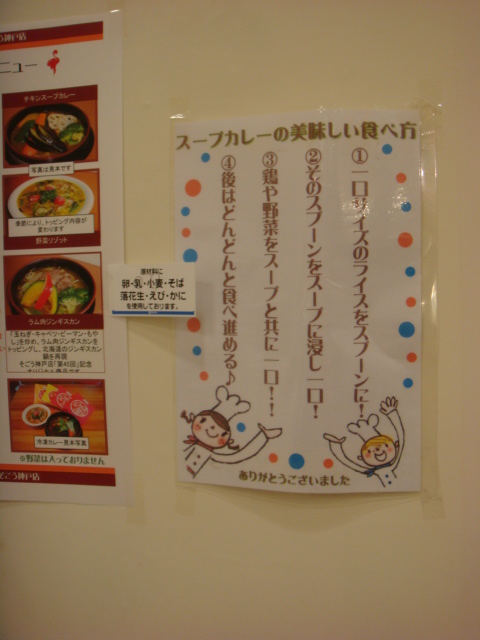 う神戸店
ニュー
チキンスープカレー
写真は見本です
季節により、トッピング内容が
変わります
野菜リゾット
ラム肉ジンギスカン
「玉ねぎ・キャベツ・ピーマン・もや
し」を炒め、ラム肉ジンギスカンを
トッピングし、北海道のジンギスカン
鍋を再現
そごう神戸店「第40回」記念
冷凍カレー見本写真
※野菜は入っておりません
そごう神戸店
原材料に
卵・乳・小麦・そば
落花生・えび・かに
を使用しております。
スープカレーの美味しい食べ方
①一口サイズのライスをスプーンに!
②そのスプーンをスープに浸し一口!
③鶏や野菜をスープと共に一口!!
④後はどんどんと食べ進める♪
ありがとうございました